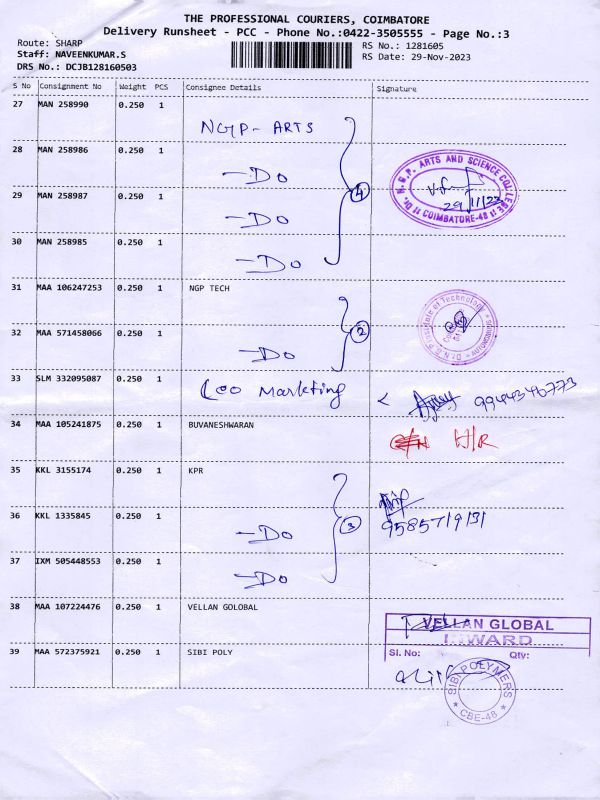 THE PROFESSIONAL COURIERS, COIMBATORE
Delivery Runsheet - PCC - Phone No.:0422-3505555 - Page No.:3
Route: SHARP
Staff: NAVEENKUMAR.S
DRS No.: DCJB128160503
RS No.: 1281605
RS Date: 29-Nov-2023
S No Consignment No Weight PCS Consignee Details Signature
27 MAN 258990 0.250 1
NGP - ARTS
28 MAN 258986 0.250 1
- Do
29 MAN 258987 0.250 1
- Do
30 MAN 258985 0.250 1
- Do
4
Dr. N.G.P. ARTS AND SCIENCE COLLEGE
29/11/23
COIMBATORE-48
31 MAA 106247253 0.250 1 NGP TECH
32 MAA 571458066 0.250 1
- Do
2
Dr. N.G.P. Institute of Technology
33 SLM 332095087 0.250 1
Leo Marketing
34 MAA 105241875 0.250 1 BUVANESHWARAN
H/R
35 KKL 3155174 0.250 1 KPR
36 KKL 1335845 0.250 1
- Do
37 IXM 505448553 0.250 1
- Do
3
38 MAA 107224476 0.250 1 VELLAN GOLOBAL
VELLAN GLOBAL
INWARD
Sl. No: Qty:
39 MAA 572375921 0.250 1 SIBI POLY
SIBI POLYMERS
CBE-48